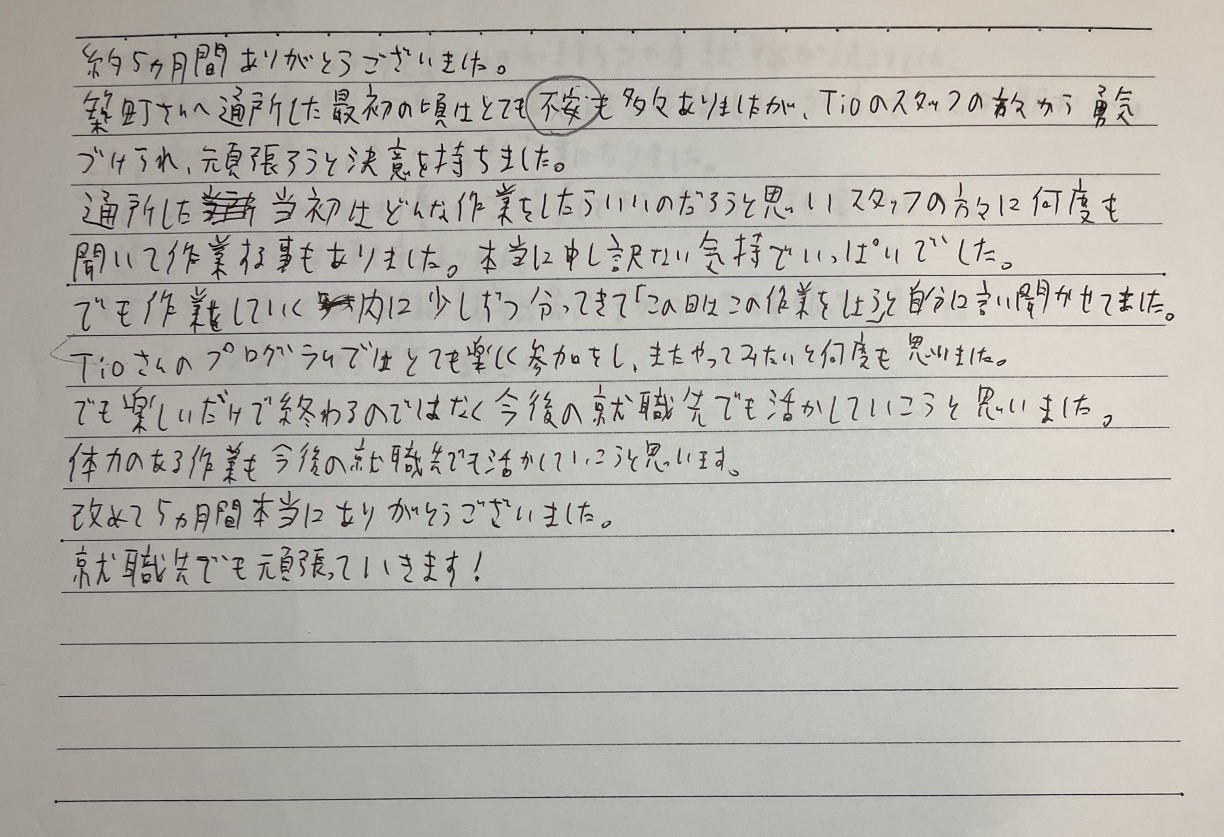 約5ヵ月間ありがとうございました。
築町さんへ通所した最初の頃はとても不安も多々ありましたが、Tioのスタッフの方々から勇気
づけられ、頑張ろうと決意を持ちました。
通所した当初はどんな作業をしたらいいのだろうと思いスタッフの方々に何度も
聞いて作業する事もありました。本当に申し訳ない気持でいっぱいでした。
でも作業をしていく内に少しずつ分ってきて「この日はこの作業をしよう」と自分に言い聞かせてました。
Tioさんのプログラムではとても楽しく参加をし、またやってみたいと何度も思いました。
でも楽しいだけで終わるのではなく今後の就職先でも活かしていこうと思いました。
体力のある作業も今後の就職先でも活かしていこうと思います。
改めて5ヵ月間本当にありがとうございました。
就職先でも頑張っていきます!